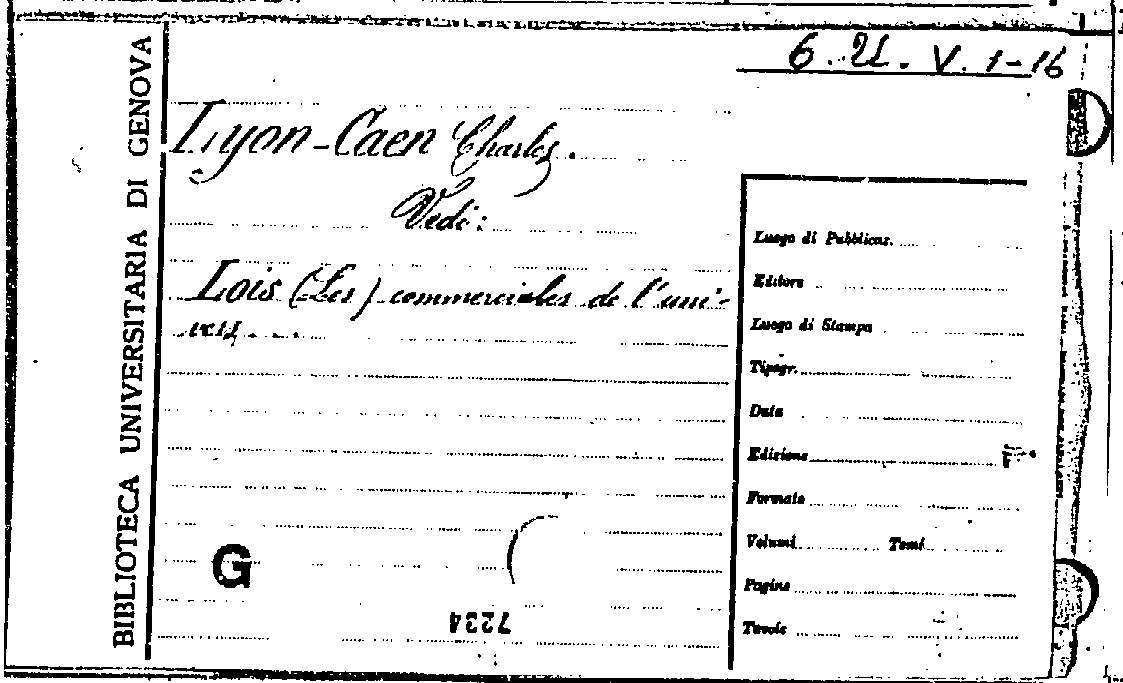 6. U. V. 1-16
BIBLIOTECA UNIVERSITARIA DI GENOVA
Lyon-Caen Charles.
Vedi:
Lois (Les) commerciales de l'uni-
vers, ...
Luogo di Pubblicaz.
Editore
Luogo di Stampa
Tipogr.
Data
Edizione
Formato
Volumi Tomi
Pagine
Tavole
G
7234